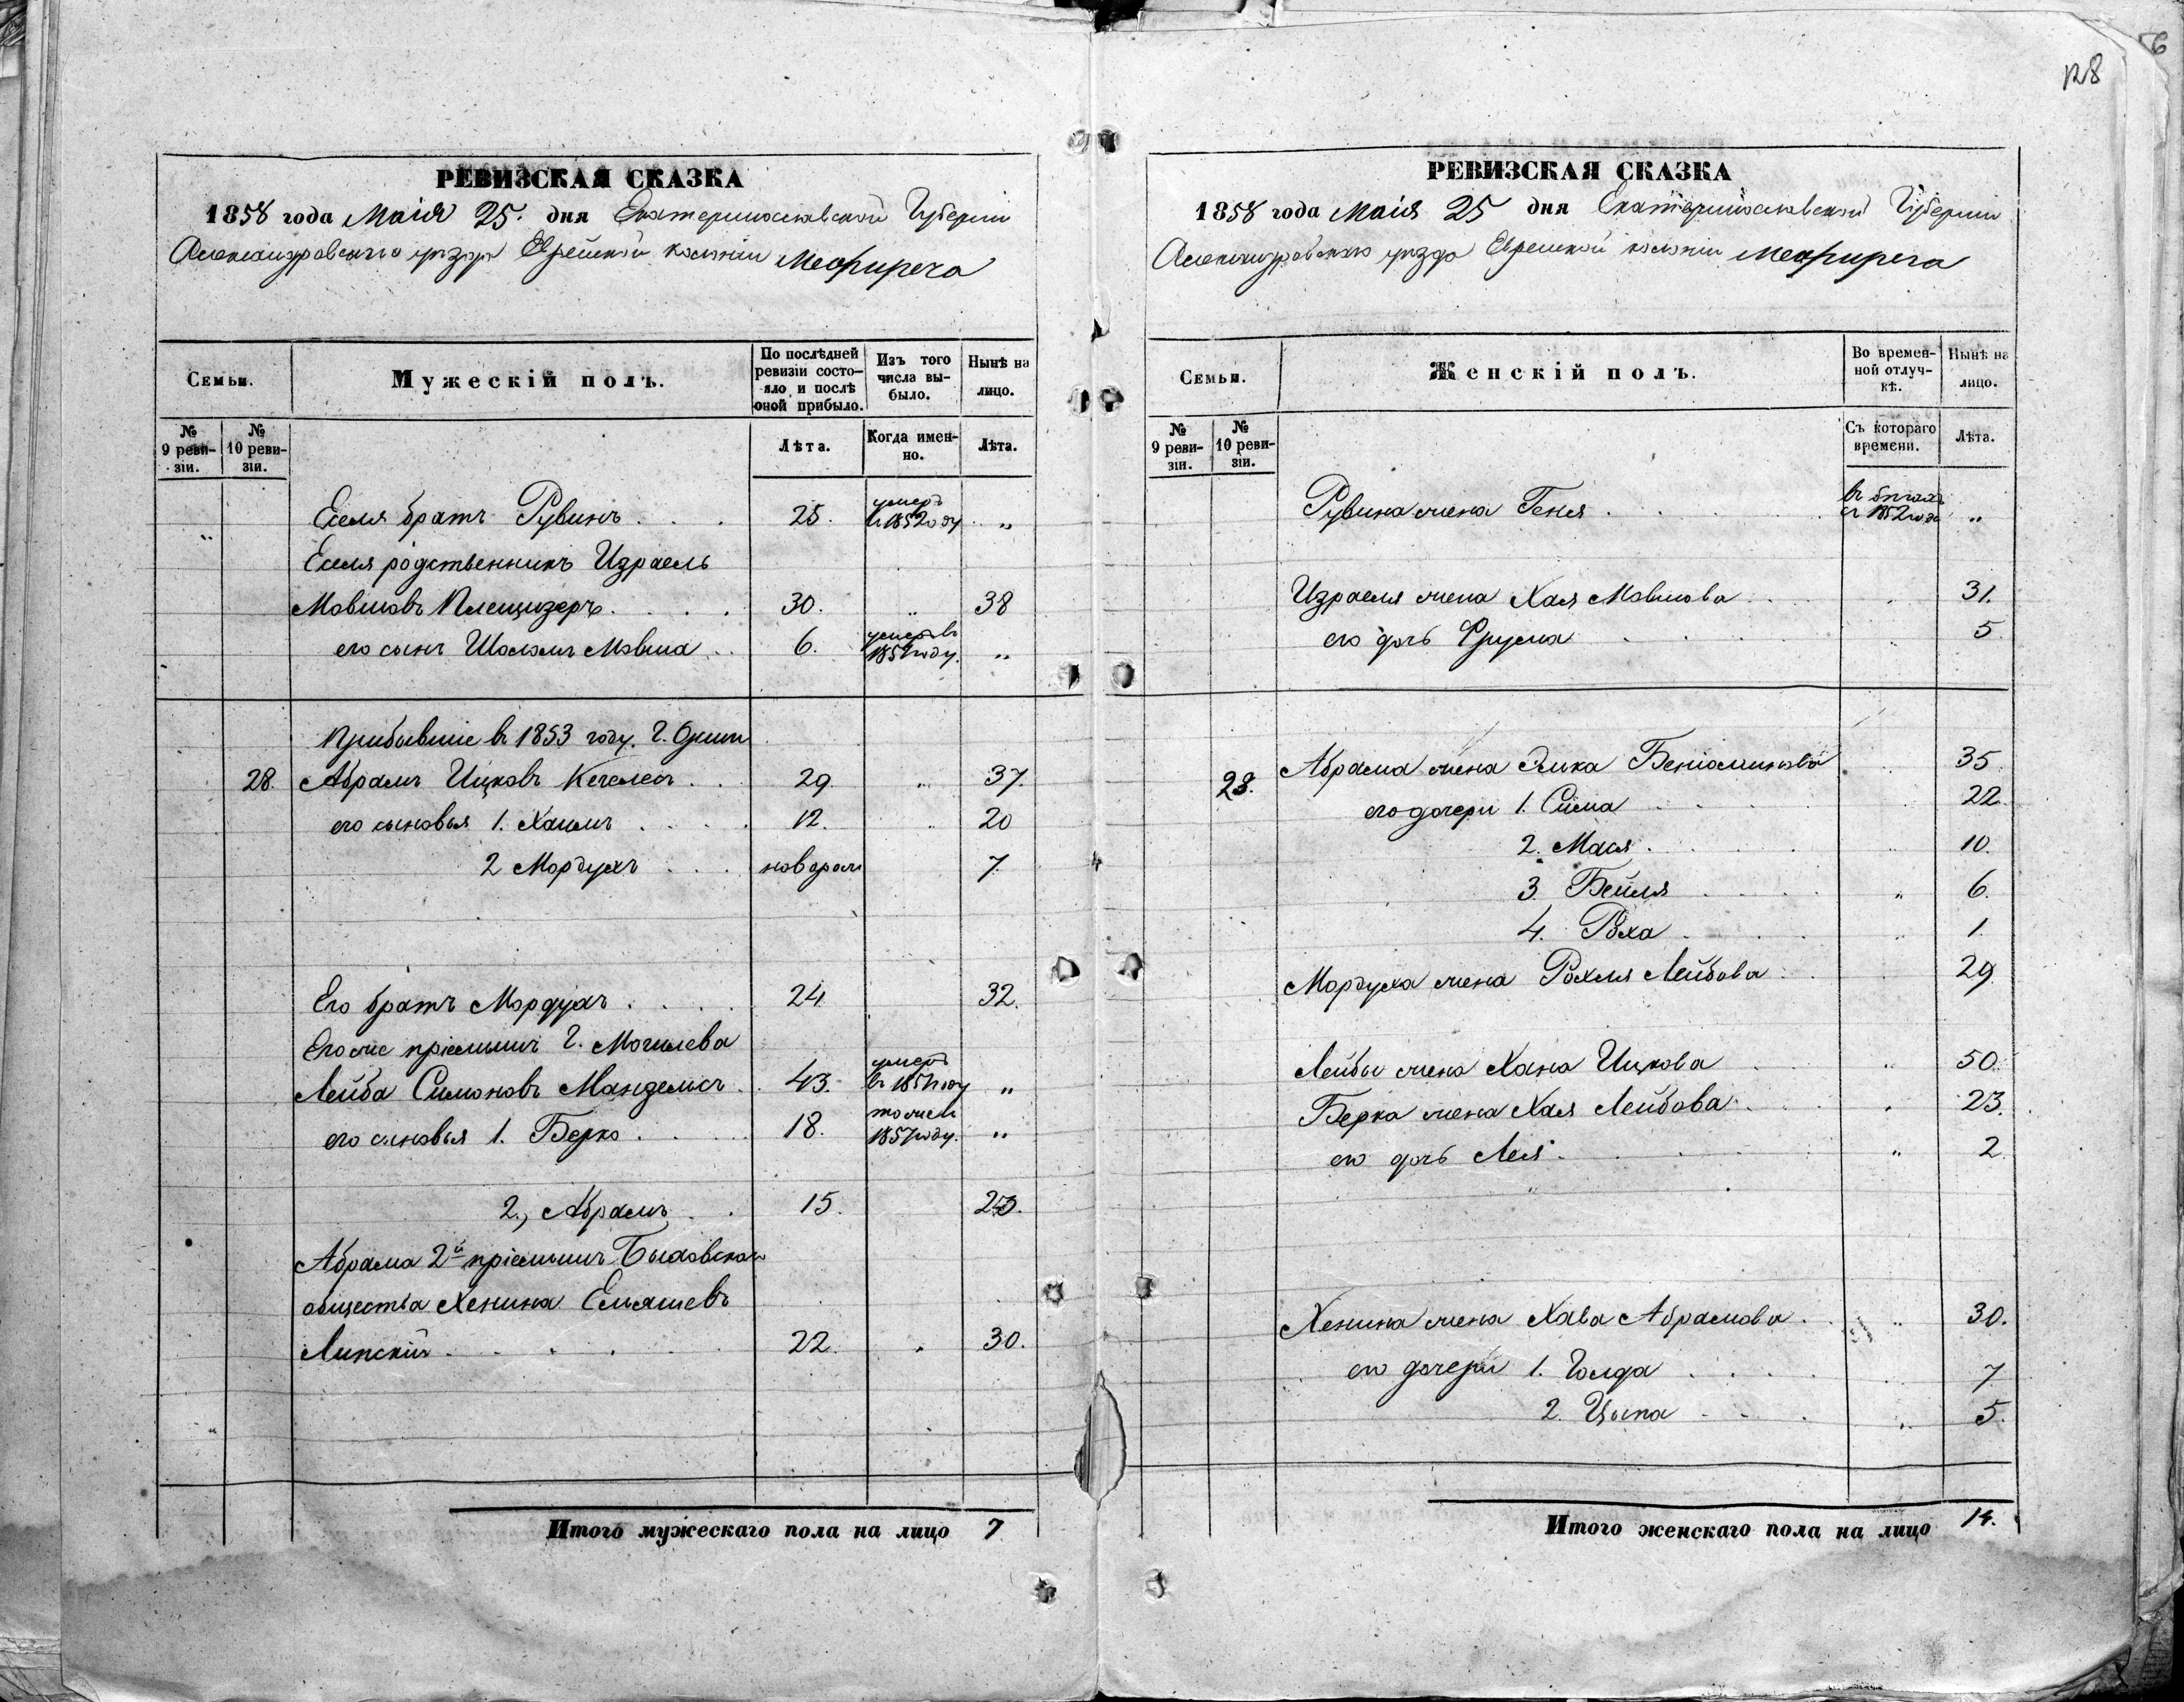 128
РЕВИЗСКАЯ СКАЗКА
1858 года Маія 25. дня Екатеринославской Губерніи
Александровскаго уѣзда Еврейской колоніи Межиречь
Семьи.
Мужескій полъ.
По послѣдней ревизіи состояло и послѣ оной прибыло.
Изъ того числа выбыло.
Нынѣ на лицо.
№ 9 ревизіи.
№ 10 ревизіи.
Лѣта.
Когда именно.
Лѣта.
Еселя братъ Рувинъ 25. умеръ в 1852 году „
Еселя родственникъ Израель
Мовшовъ Плещизеръ 30. „ 38
его сынъ Шоломъ Мовша 6. умеръ въ 185 году. „
Прибывшіе в 1853 году. Г. Орши
28. Абрамъ Ицковъ Кегелесъ 29. „ 37.
его сыновья 1. Хаимъ 12. „ 20
2 Мордухъ новорож 7.
Его братъ Мордухъ 24. 32.
Его же пріемышъ Г. Могилева
Лейба Симоновъ Манделисъ 43. умеръ в 185 году „
его сыновья 1. Берко 18. тоже 1857 году. „
2., Абрамъ 15. 23.
Абрама 2й пріемышъ Быховскаго
общества Хенина Ельяшевъ
Липскій 22. „ 30.
Итого мужескаго пола на лицо 7
РЕВИЗСКАЯ СКАЗКА
1858 года Маія 25 дня Екатеринославской Губерніи
Александровскаго уѣзда Еврейской колоніи Межиречь
Семьи.
Женскій полъ.
Во временной отлучкѣ.
Нынѣ на лицо.
№ 9 ревизіи.
№ 10 ревизіи.
Съ котораго времени.
Лѣта.
Рувина жена Геня в бѣгахъ съ 1852 года „
Израеля жена Хая Мовшова 31.
его дочь Фрума 5
28. Абрама жена Элька Беніоминова 35
его дочери 1. Сима 22.
2. Мася 10.
3. Бейля „ 6.
4. Роха „ 1
Мордуха жена Рохля Лейбова 29
Лейбы жена Хана Ицкова „ 50.
Берка жена Хая Лейбова „ 23.
его дочь Лея „ 2.
Хенина жена Хава Абрамова „ 30.
его дочери 1. Голда 7
2. Цыпа „ 5.
Итого женскаго пола на лицо 14.